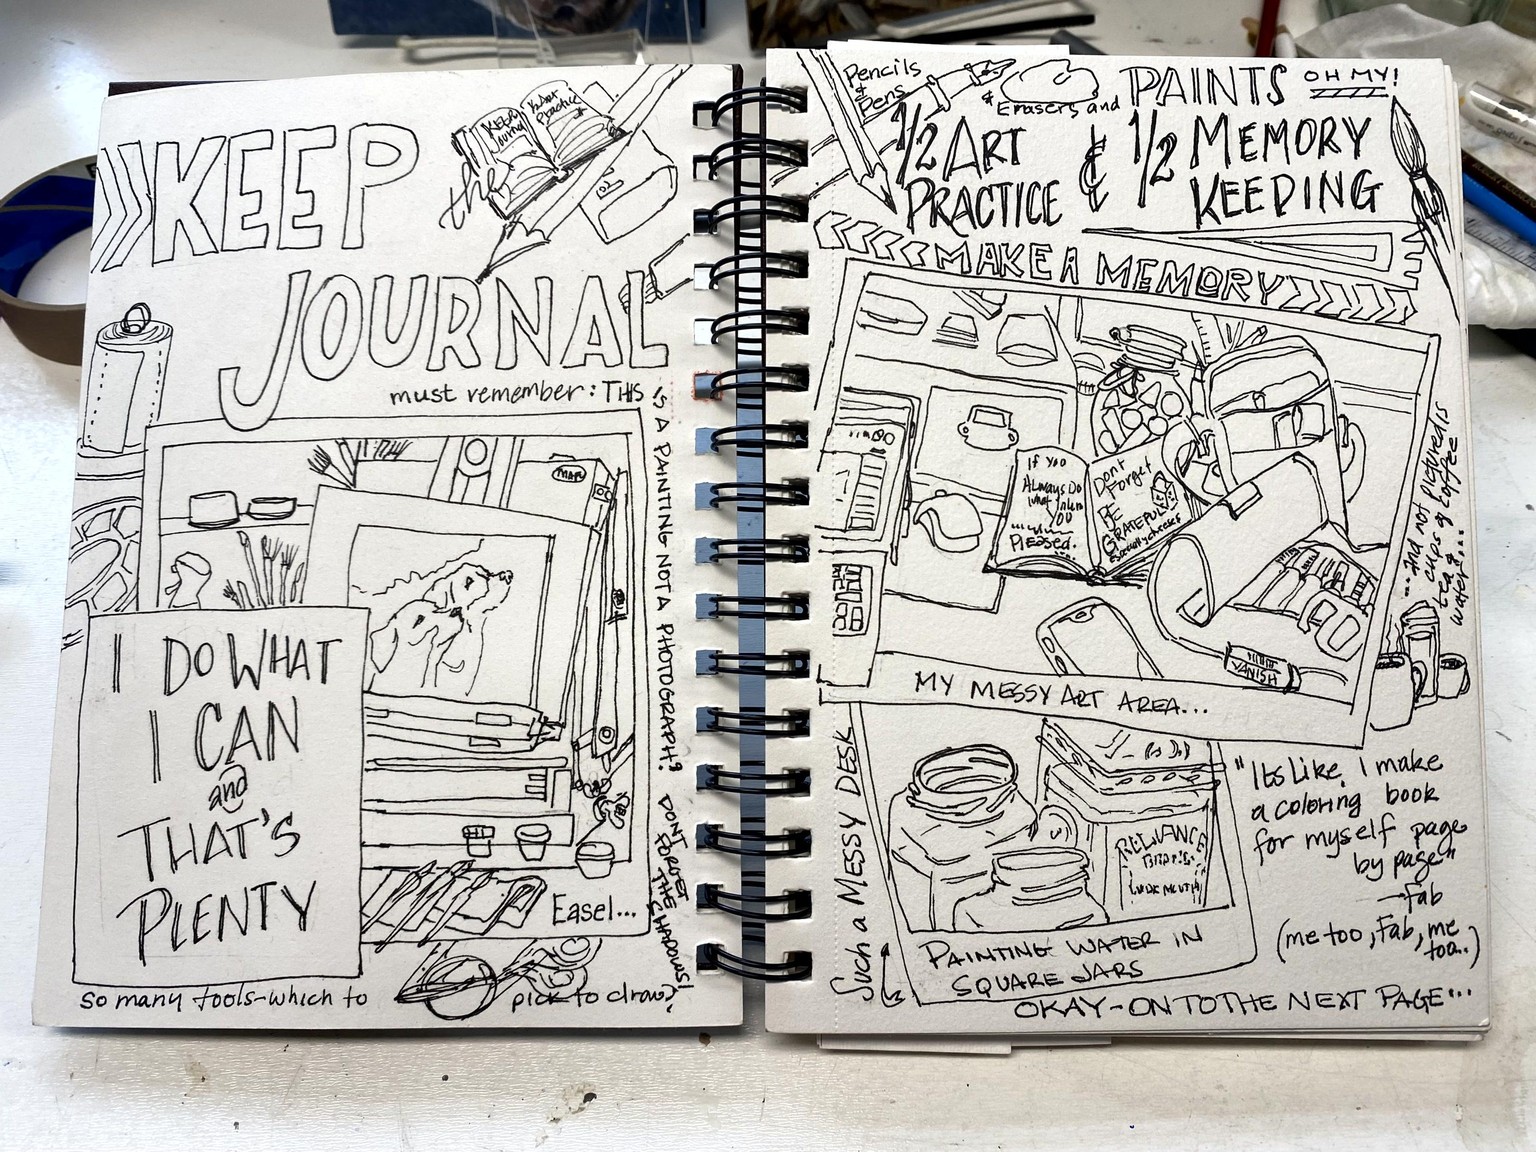 KEEP
the
KEEP
Journal
1/2 Art
Practice
JOURNAL
must remember: THIS
IS A PAINTING NOT A PHOTOGRAPH?
DON'T FORGET THE SHADOWS!
I DO WHAT
I CAN
and
THAT'S
PLENTY
Easel...
so many tools-which to
pick to draw?
Pencils
&
Pens
& Erasers and
PAINTS OH MY!
1/2 ART
PRACTICE
&
1/2 MEMORY
KEEPING
MAKE A MEMORY
If You
Always Do
PLEASED...
Dont
Forget
BE
GRATEFUL
VANISH
MY MESSY ART AREA...
...And not pictured is
cups of coffee
tea &
water...
Such a MESSY DESK
RELIANCE
WIDE MOUTH
PAINTING WATER IN
SQUARE JARS
"Its like I make
a coloring book
for myself page
by page"
—Fab
(me too, Fab, me
too..)
OKAY-ON TO THE NEXT PAGE...